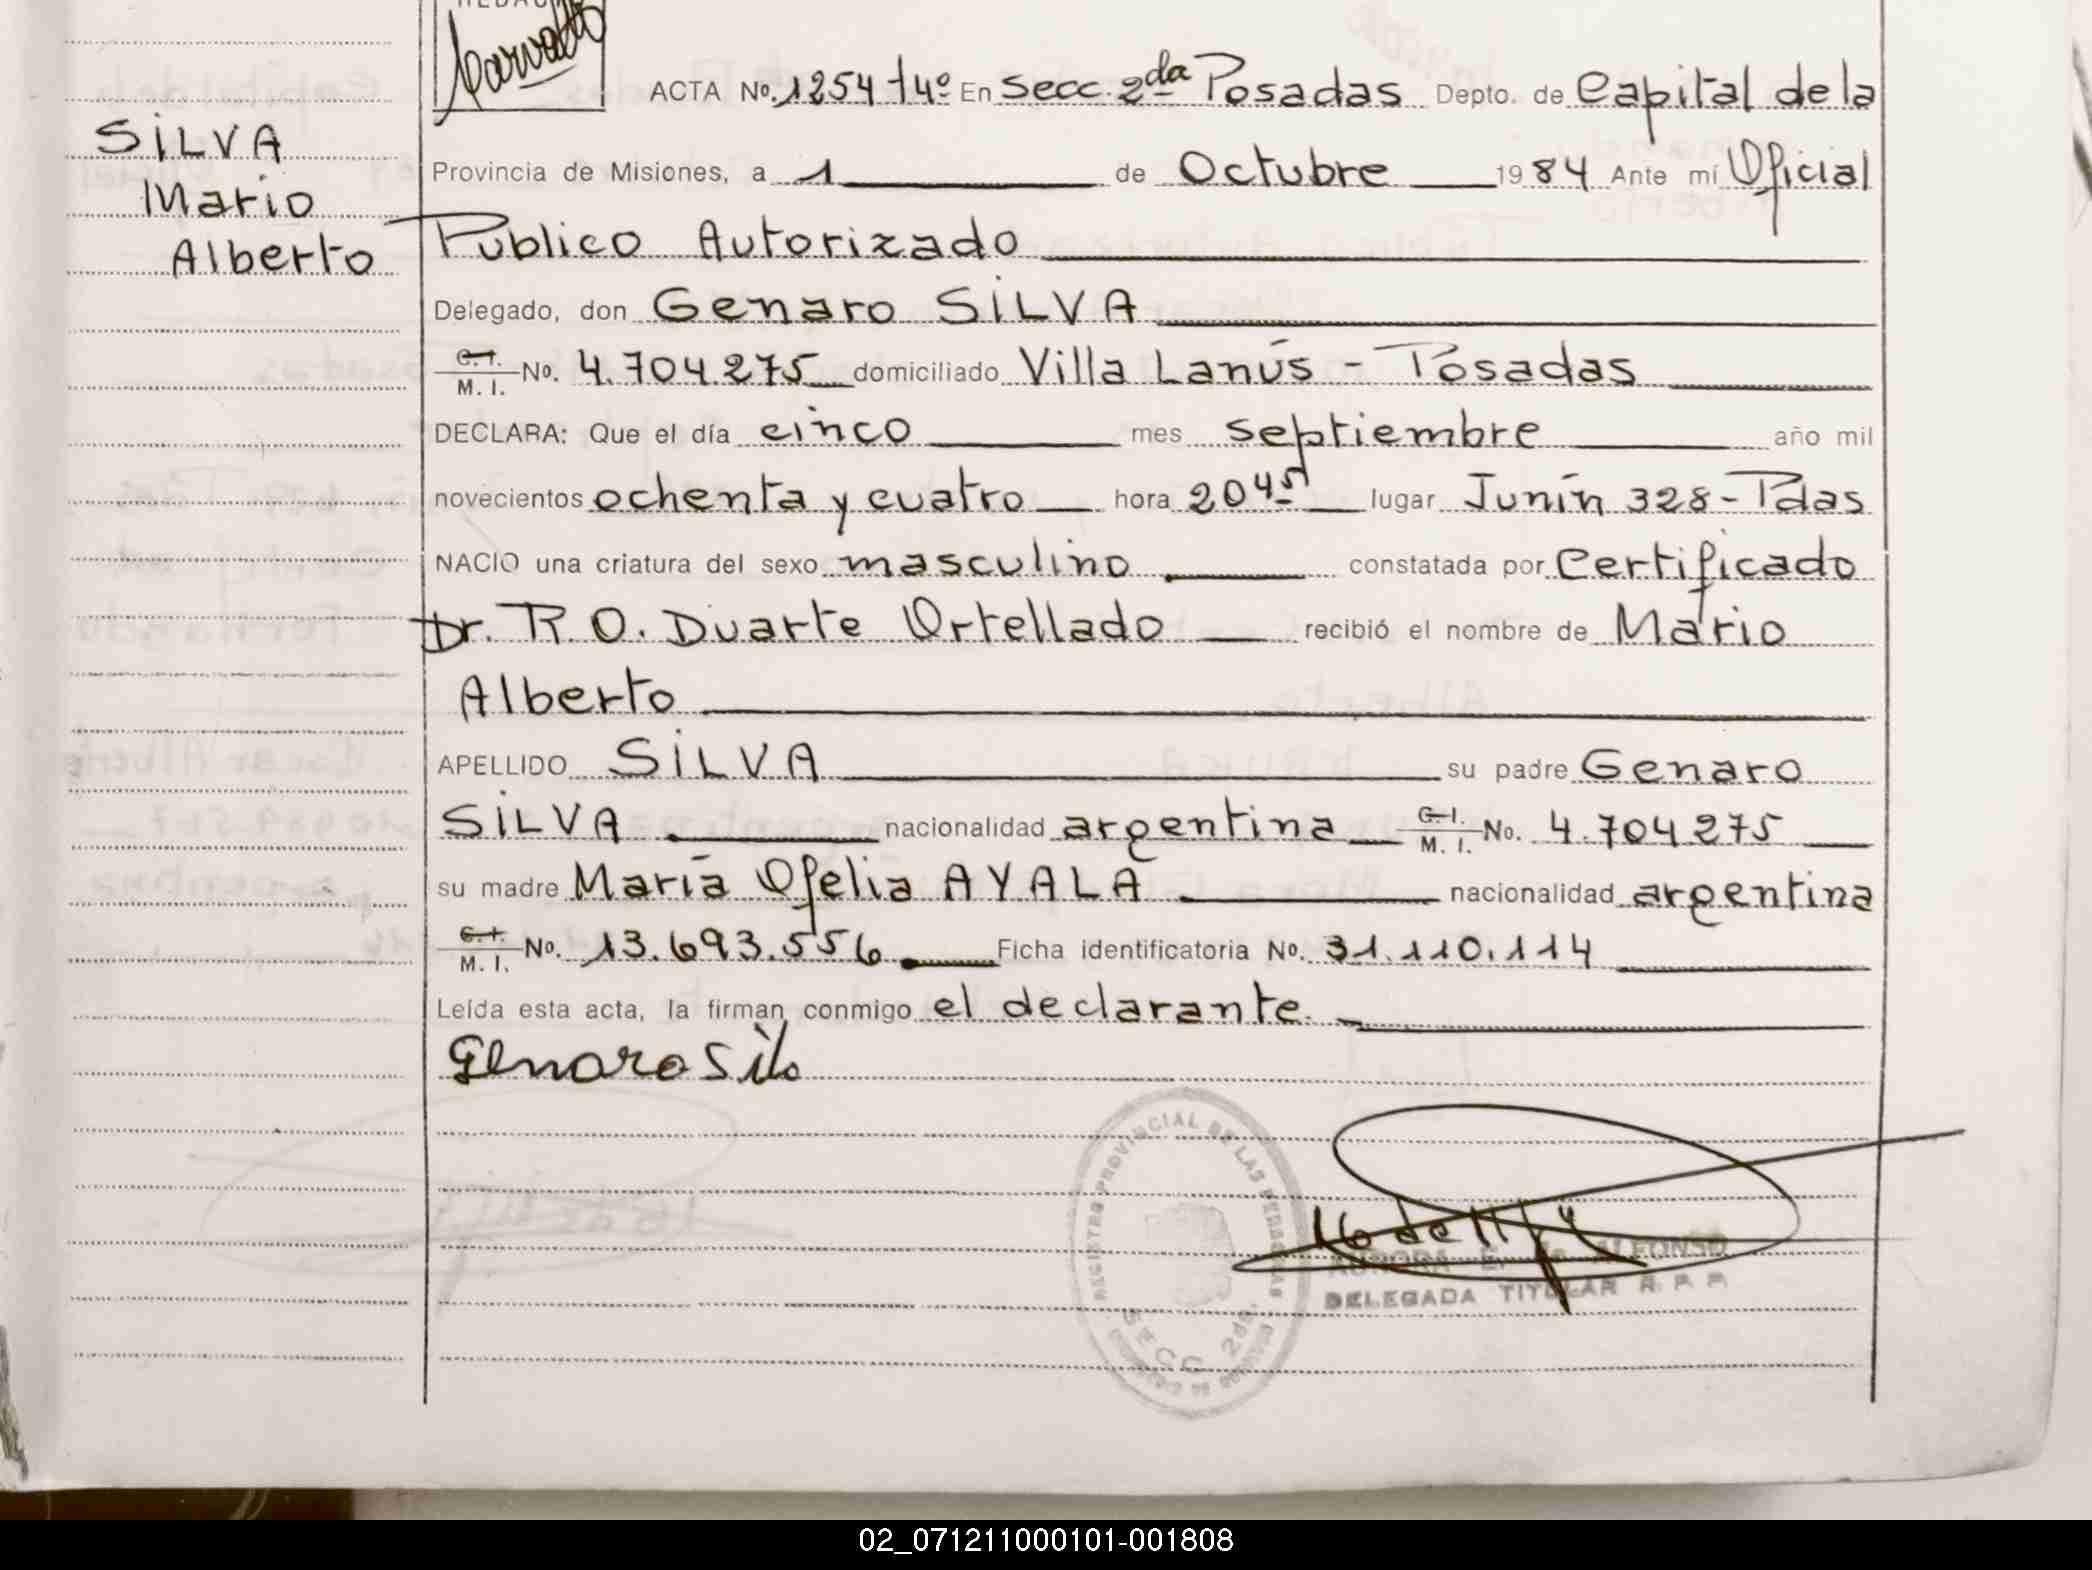 ACTA No. 1254 t4º En Secc. 2da Posadas Depto. de Capital de la
SILVA
Mario
Alberto
Provincia de Misiones, a 1 de Octubre 1984 Ante mí Oficial
Publico Autorizado
Delegado, don Genaro SILVA
C. I. M. I. No. 4.704.275 domiciliado Villa Lanús - Posadas
DECLARA: Que el día cinco mes septiembre año mil
novecientos ochenta y cuatro hora 20 45 lugar Junín 328 - Pdas
NACIO una criatura del sexo masculino constatada por Certificado
Dr. R. O. Duarte Ortellado recibió el nombre de Mario
Alberto
APELLIDO SILVA su padre Genaro
SILVA nacionalidad argentina C. I. M. I. No. 4.704.275
su madre María Ofelia AYALA nacionalidad argentina
C. I. M. I. No. 13.693.556 Ficha identificatoria No. 31.110.114
Leída esta acta, la firman conmigo el declarante.
Genaro Silva
REGISTRO PROVINCIAL DE LAS PERSONAS
SECC 2da.
AURORA E. de ALFONSO
DELEGADA TITULAR R. P. P.
02_071211000101-001808